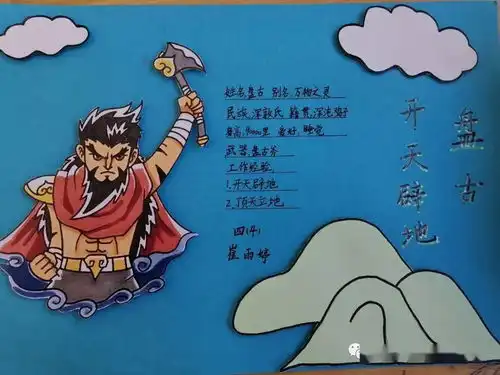 盘古
开天辟地
姓名:盘古 别名:万物之灵
民族:浑敦氏 籍贯:浑沌
身高:9000里 爱好:睡觉
武器:盘古斧
工作经验:
1.开天辟地
2.顶天立地
四(4)
崔雨婷